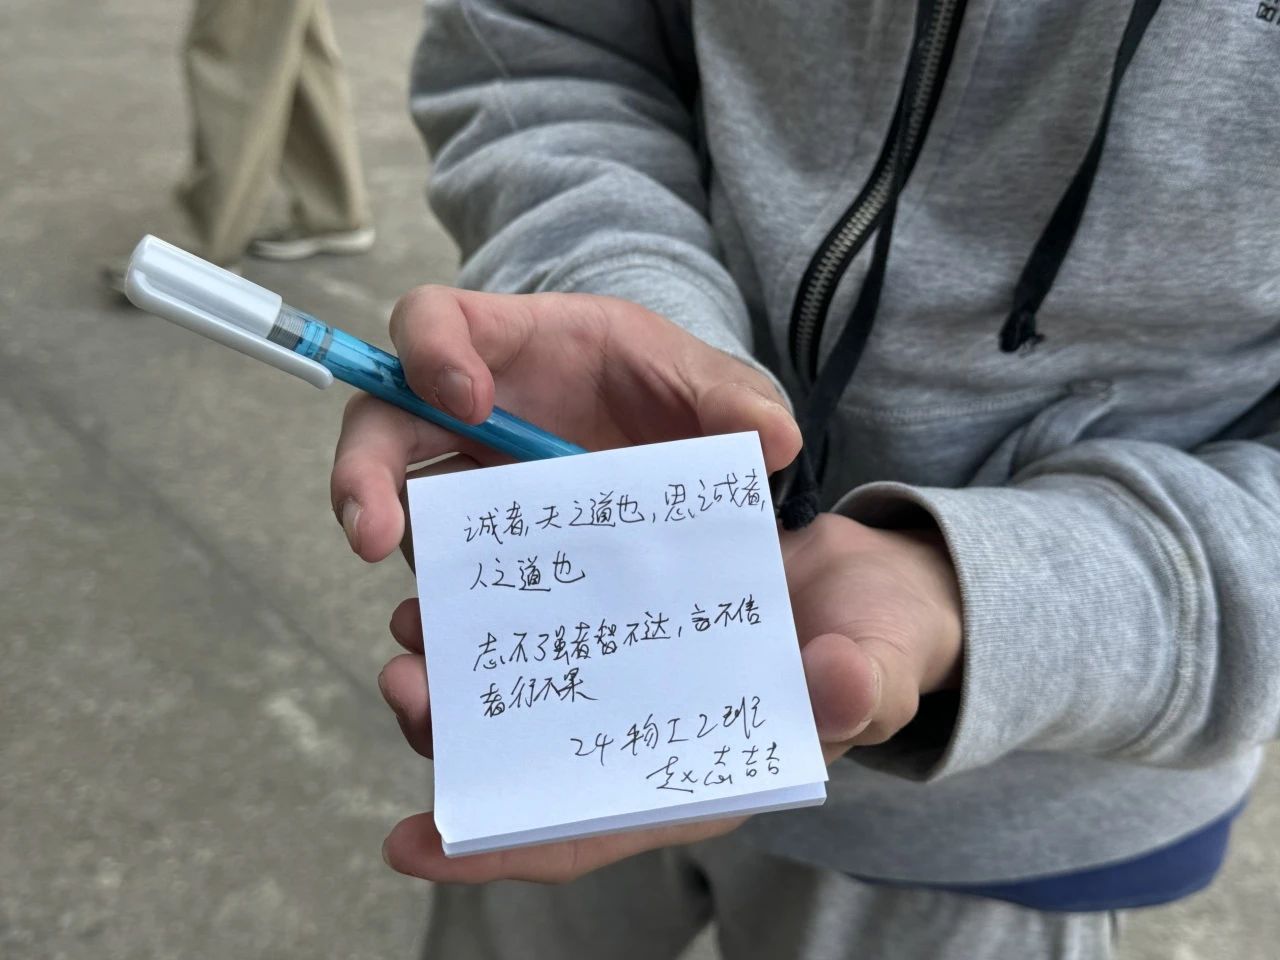 诚者,天之道也,思诚者,
人之道也
志不强者智不达,言不信
者行不果
24物工2班
赵志喆